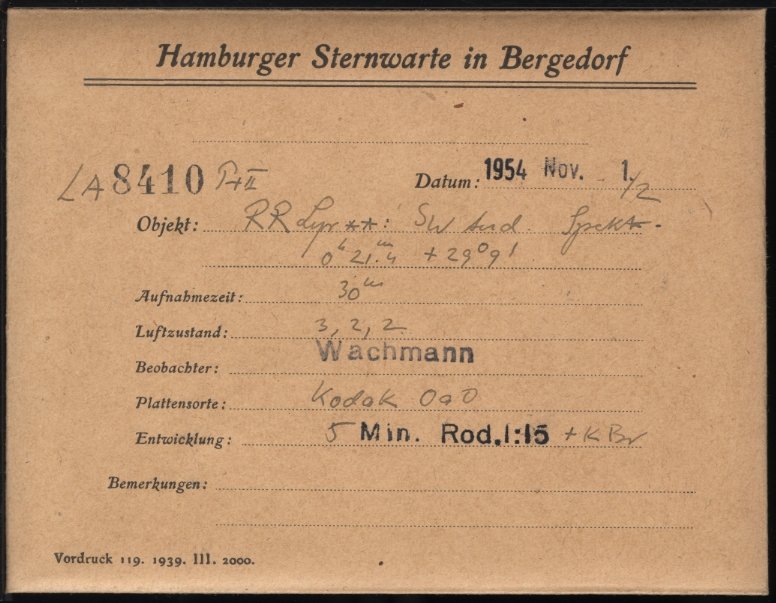 Hamburger Sternwarte in Bergedorf
LA 8410 P+II
Datum: 1954 Nov. 1./2
Objekt: RR Lyr **: SW And. Spektr.
0ʰ 21.ᵐ4 + 29⁰9'
Aufnahmezeit: 30ᵐ
Luftzustand: 3, 2, 2
Beobachter: Wachmann
Plattensorte: Kodak OaO
Entwicklung: 5 Min. Rod. 1:15 + KBr
Bemerkungen:
Vordruck 119. 1939. III. 2000.